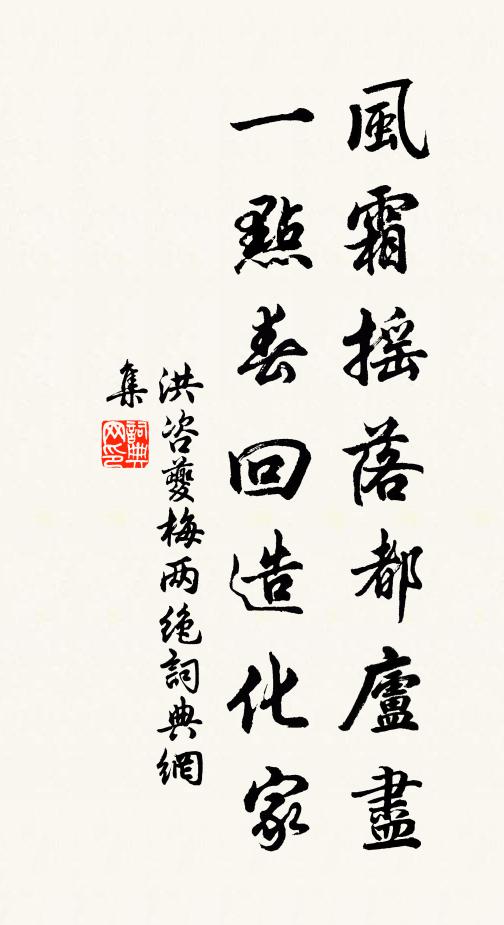 風霜摇落都廬盡
一點春回造化家
洪咨夔梅两绝詞典網
集
詞典网印